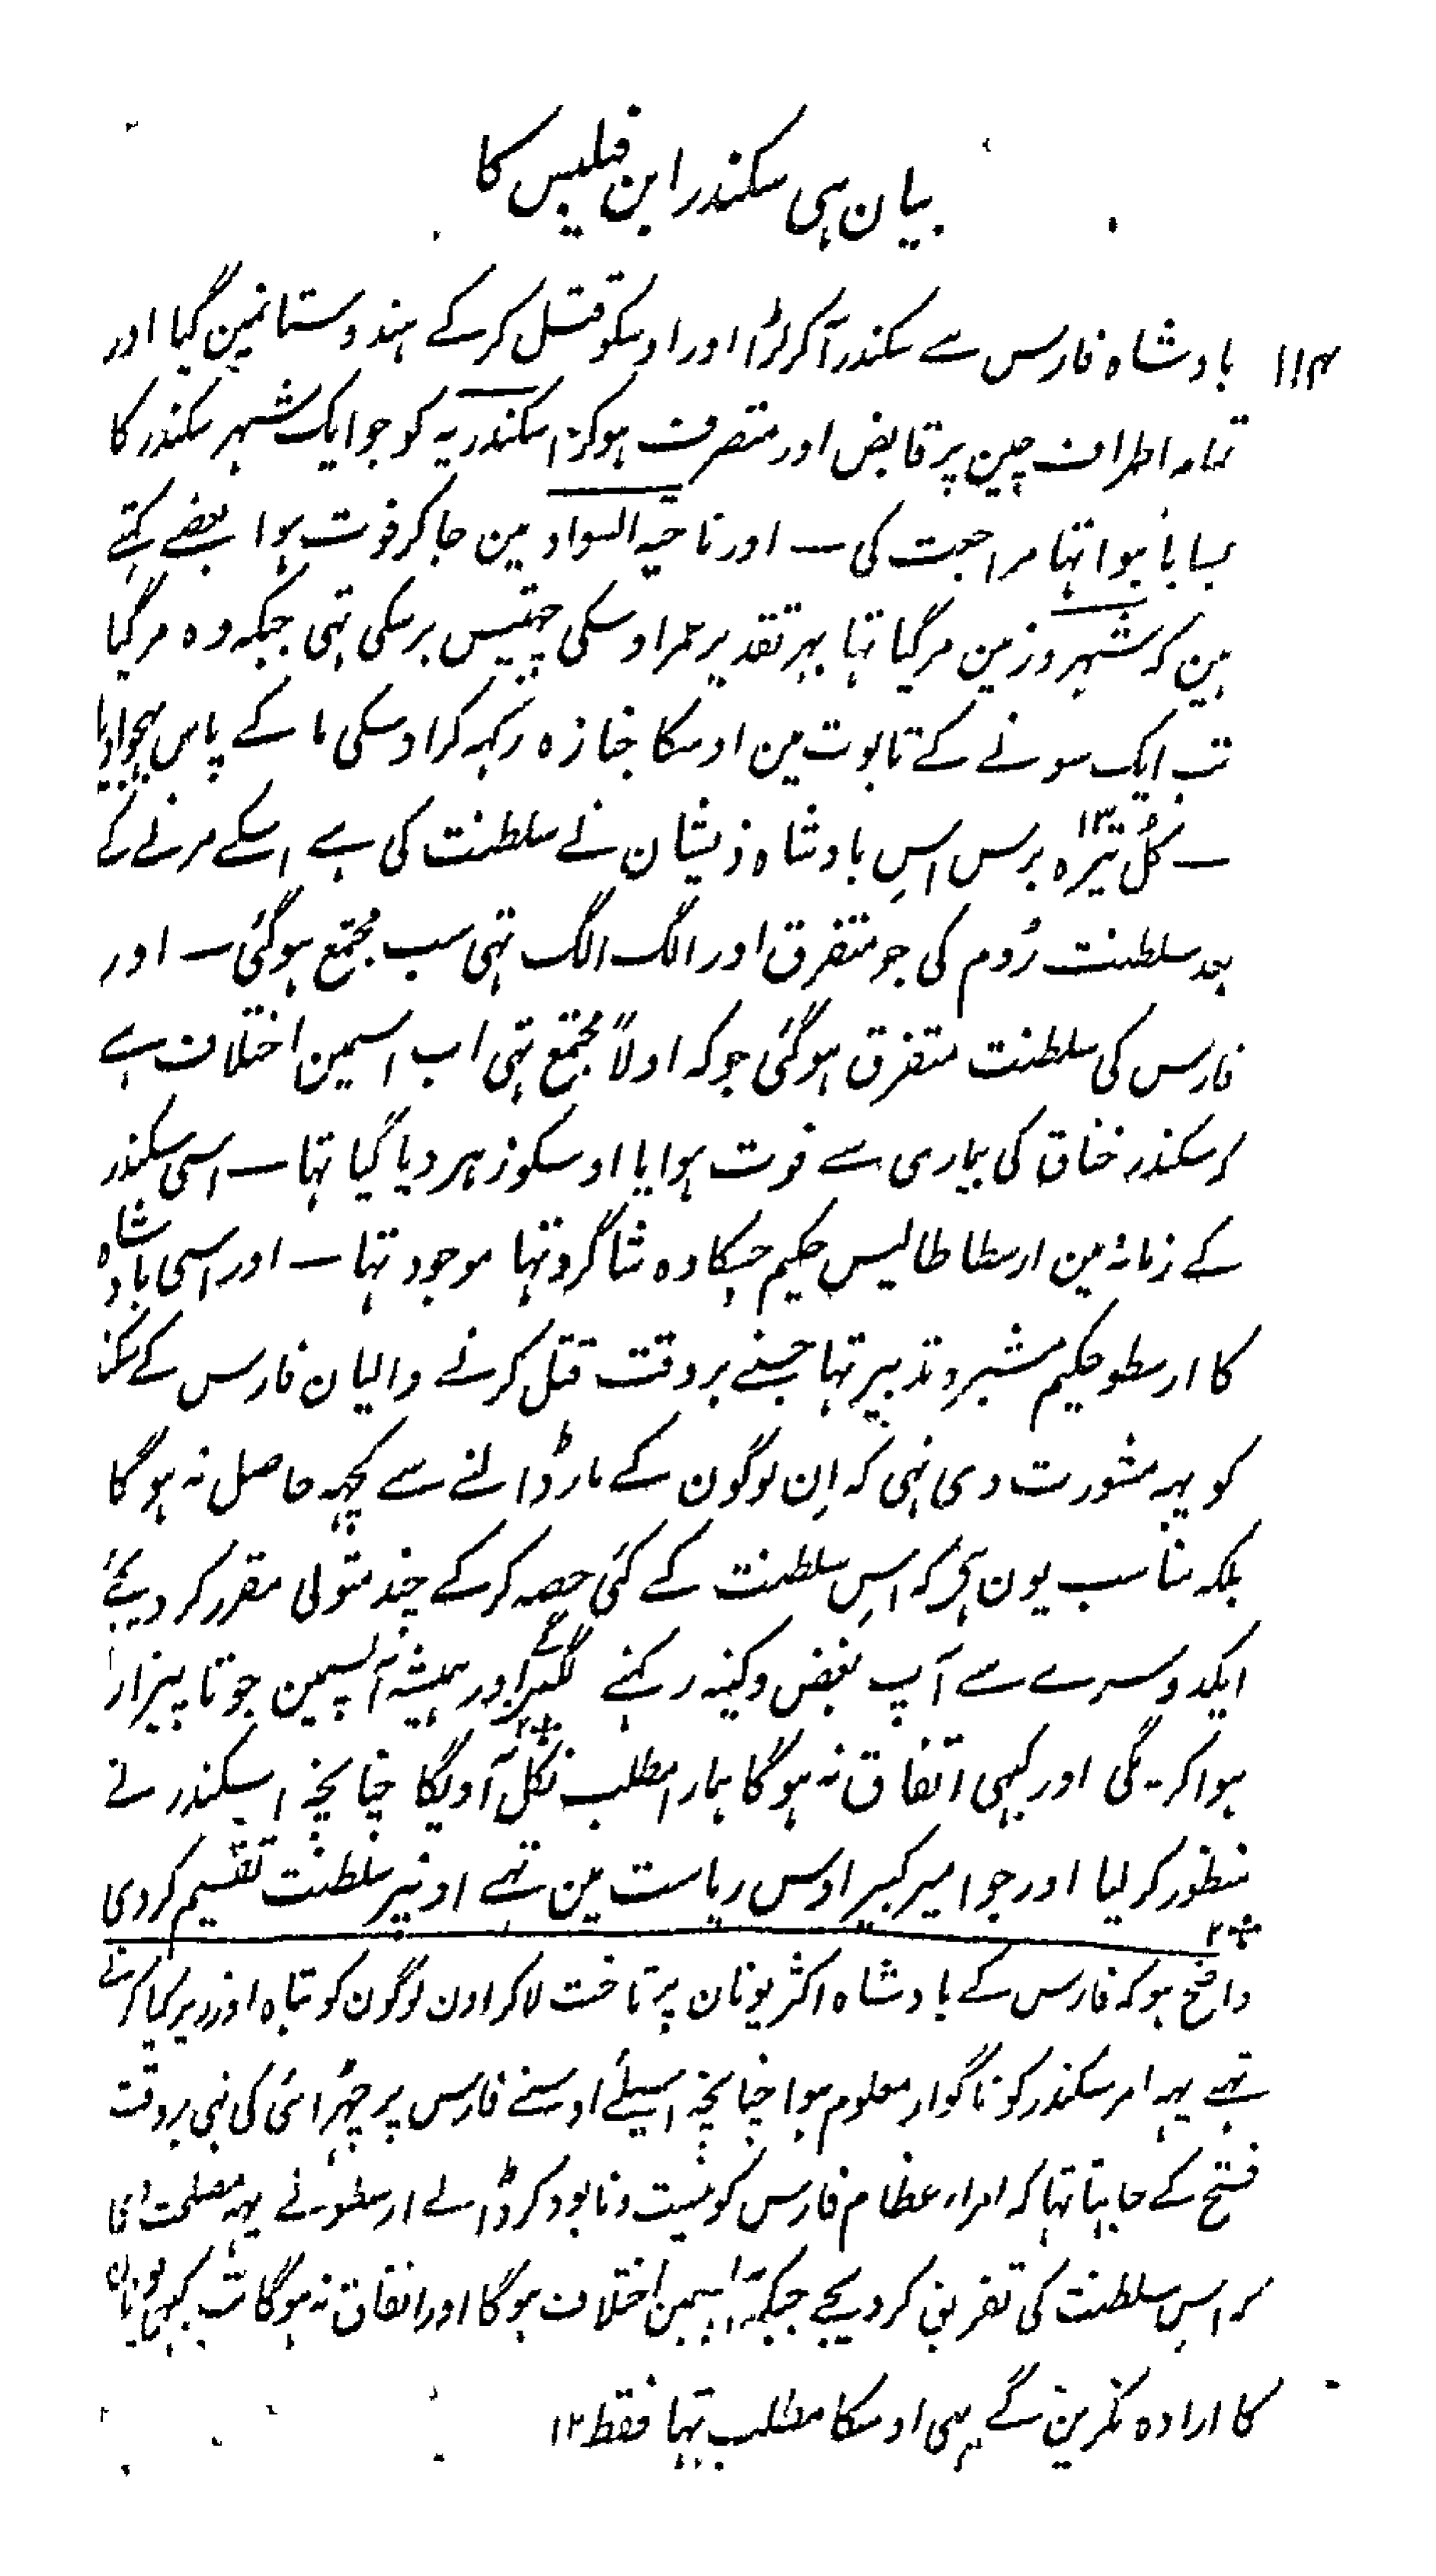 بیان ہی سکندر ابن فیلبس کا
۱۱۴ بادشاہ فارس سے سکندر آکر لڑا اور اوسکو قتل کر کے ہندوستانمین گیا اور
تمام اطراف چین پر قابض اور متصرف ہوکر اسکندریہ کو جو ایک شہر سکندر کا
بسایا ہوا تہا مراجعت کی — اور ناحیۃ السواد مین جاکر فوت ہوا بعضے کہتے
ہین کہ شہر وز مین مر گیا تہا بہر تقدیر عمر اوسکی چہتیس برسکی تہی جبکہ وہ مر گیا
تب ایک سونے کے تابوت مین اوسکا جنازہ رکہہ کر اوسکی ما کے پاس بھجوا دیا
— کُل تیرہ ۱۳ برس اِس بادشاہ ذیشان نے سلطنت کی ہے اسکے مرنے کے
بعد سلطنت رُوم کی جو متفرق اور الگ الگ تہی سب مجتمع ہوگئی — اور
فارس کی سلطنت متفرق ہوگئی جو کہ اولاً مجتمع تہی اب اسمین اختلاف ہے
کہ سکندر خناق کی بیماری سے فوت ہوا یا اوسکو زہر دیا گیا تہا — اسی سکندر
کے زمانہ مین ارسطاطالیس حکیم جسکا وہ شاگرد تہا موجود تہا — اور اسی بادشاہ
کا ارسطو حکیم مشیر و تدبیر تہا جسنے بروقت قتل کرنے والیان فارس کے سکندر
کو یہہ مشورت دی تہی کہ اِن لوگون کے مار ڈالنے سے کچہہ حاصل نہ ہوگا
بلکہ مناسب یون ہی کہ اِس سلطنت کے کئی حصہ کر کے چند متولی مقرر کر دیئے
ایکدوسرے سے آپ بغض و کینہ رکہنے لگینگے اور ہمیشہ آپسمین جوتا پیزار
ہوا کریگی اور کبہی اتفاق نہ ہوگا ہمارا مطلب نکل آویگا ۲ چنانچہ اسکندر نے
منظور کر لیا اور جو امیر کبیر اوس ریاست مین تہے اونپر سلطنت تقسیم کر دی
۲ واضح ہو کہ فارس کے بادشاہ اکثر یونان پر تاخت لاکر اون لوگون کو تباہ اور زیر کیا کرتے
تہے یہہ امر سکندر کو ناگوار معلوم ہوا چنانچہ اسیلئے اوسنے فارس پر چہڑائی کی تہی بروقت
فتح کے چاہتا تہا کہ امراء عظام فارس کو نیست و نابود کر ڈالے ارسطو نے یہہ مصلحت دی
کہ اِس سلطنت کی تفریق کر دیجے جبکہ آپسمین اختلاف ہوگا اور اتفاق نہ ہوگا تب کبہی یونان
کا ارادہ نکرینگے یہی اوسکا مطلب تہا فقط ۱۲